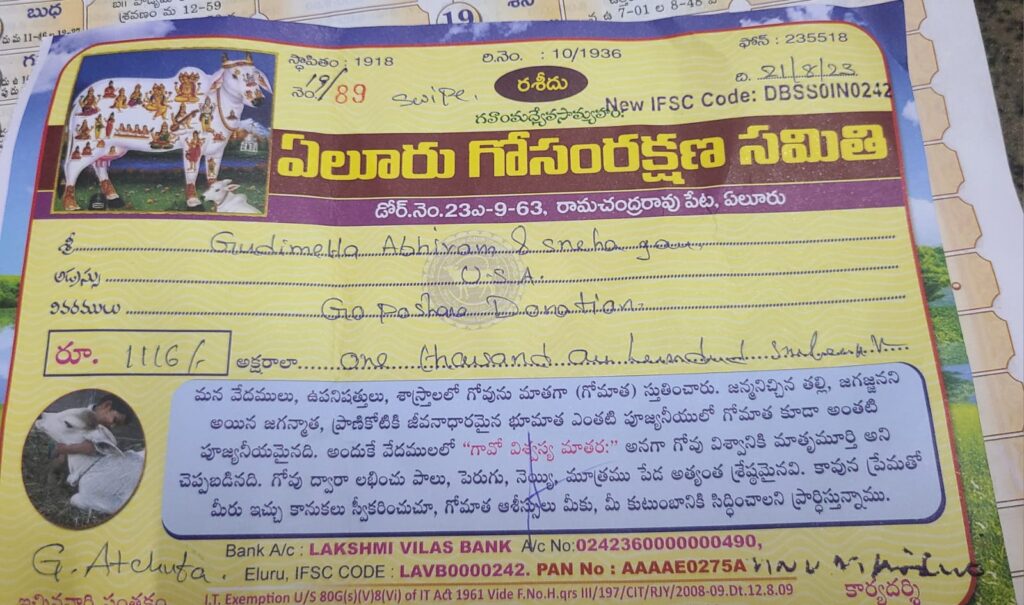 బుధ
శ్రవణం మ 12-59
19
శని
ఉ 7-01 ల 8-48
స్థాపితం : 1918
రి.నెం. : 10/1936
ఫోన్ : 235518
నెం. 19/89
swipe.
రశీదు
ది. 21/8/23
New IFSC Code: DBSS0IN0242
ఏలూరు గోసంరక్షణ సమితి
డోర్.నెం.23ఎ-9-63, రామచంద్రరావు పేట, ఏలూరు
శ్రీ Gudimella Abhiram & Sneha
అడ్రస్సు U.S.A.
వివరములు Go Poshana Donation
రూ. 1116/-
అక్షరాలా one thousand one hundred
మన వేదములు, ఉపనిషత్తులు, శాస్త్రాలలో గోవును మాతగా (గోమాత) స్తుతించారు. జన్మనిచ్చిన తల్లి, జగజ్జనని
అయిన జగన్మాత, ప్రాణికోటికి జీవనాధారమైన భూమాత ఎంతటి పూజ్యనీయులో గోమాత కూడా అంతటి
పూజ్యనీయమైనది. అందుకే వేదములలో "గావో విశ్వస్య మాతరః" అనగా గోవు విశ్వానికి మాతృమూర్తి అని
చెప్పబడినది. గోవు ద్వారా లభించు పాలు, పెరుగు, నెయ్యి, మూత్రము పేడ అత్యంత శ్రేష్ఠమైనవి. కావున ప్రేమతో
మీరు ఇచ్చు కానుకలు స్వీకరించుచూ, గోమాత ఆశీస్సులు మీకు, మీ కుటుంబానికి సిద్ధించాలని ప్రార్థిస్తున్నాము.
G. Atchuta.
Bank A/c : LAKSHMI VILAS BANK A/c No:0242360000000490,
Eluru, IFSC CODE : LAVB0000242. PAN No : AAAAE0275A
ఇచ్చినవారి సంతకం
I.T. Exemption U/S 80G(s)(V)8(Vi) of IT Act 1961 Vide F.No.H.qrs III/197/CIT/RJY/2008-09.Dt.12.8.09
కార్యదర్శి